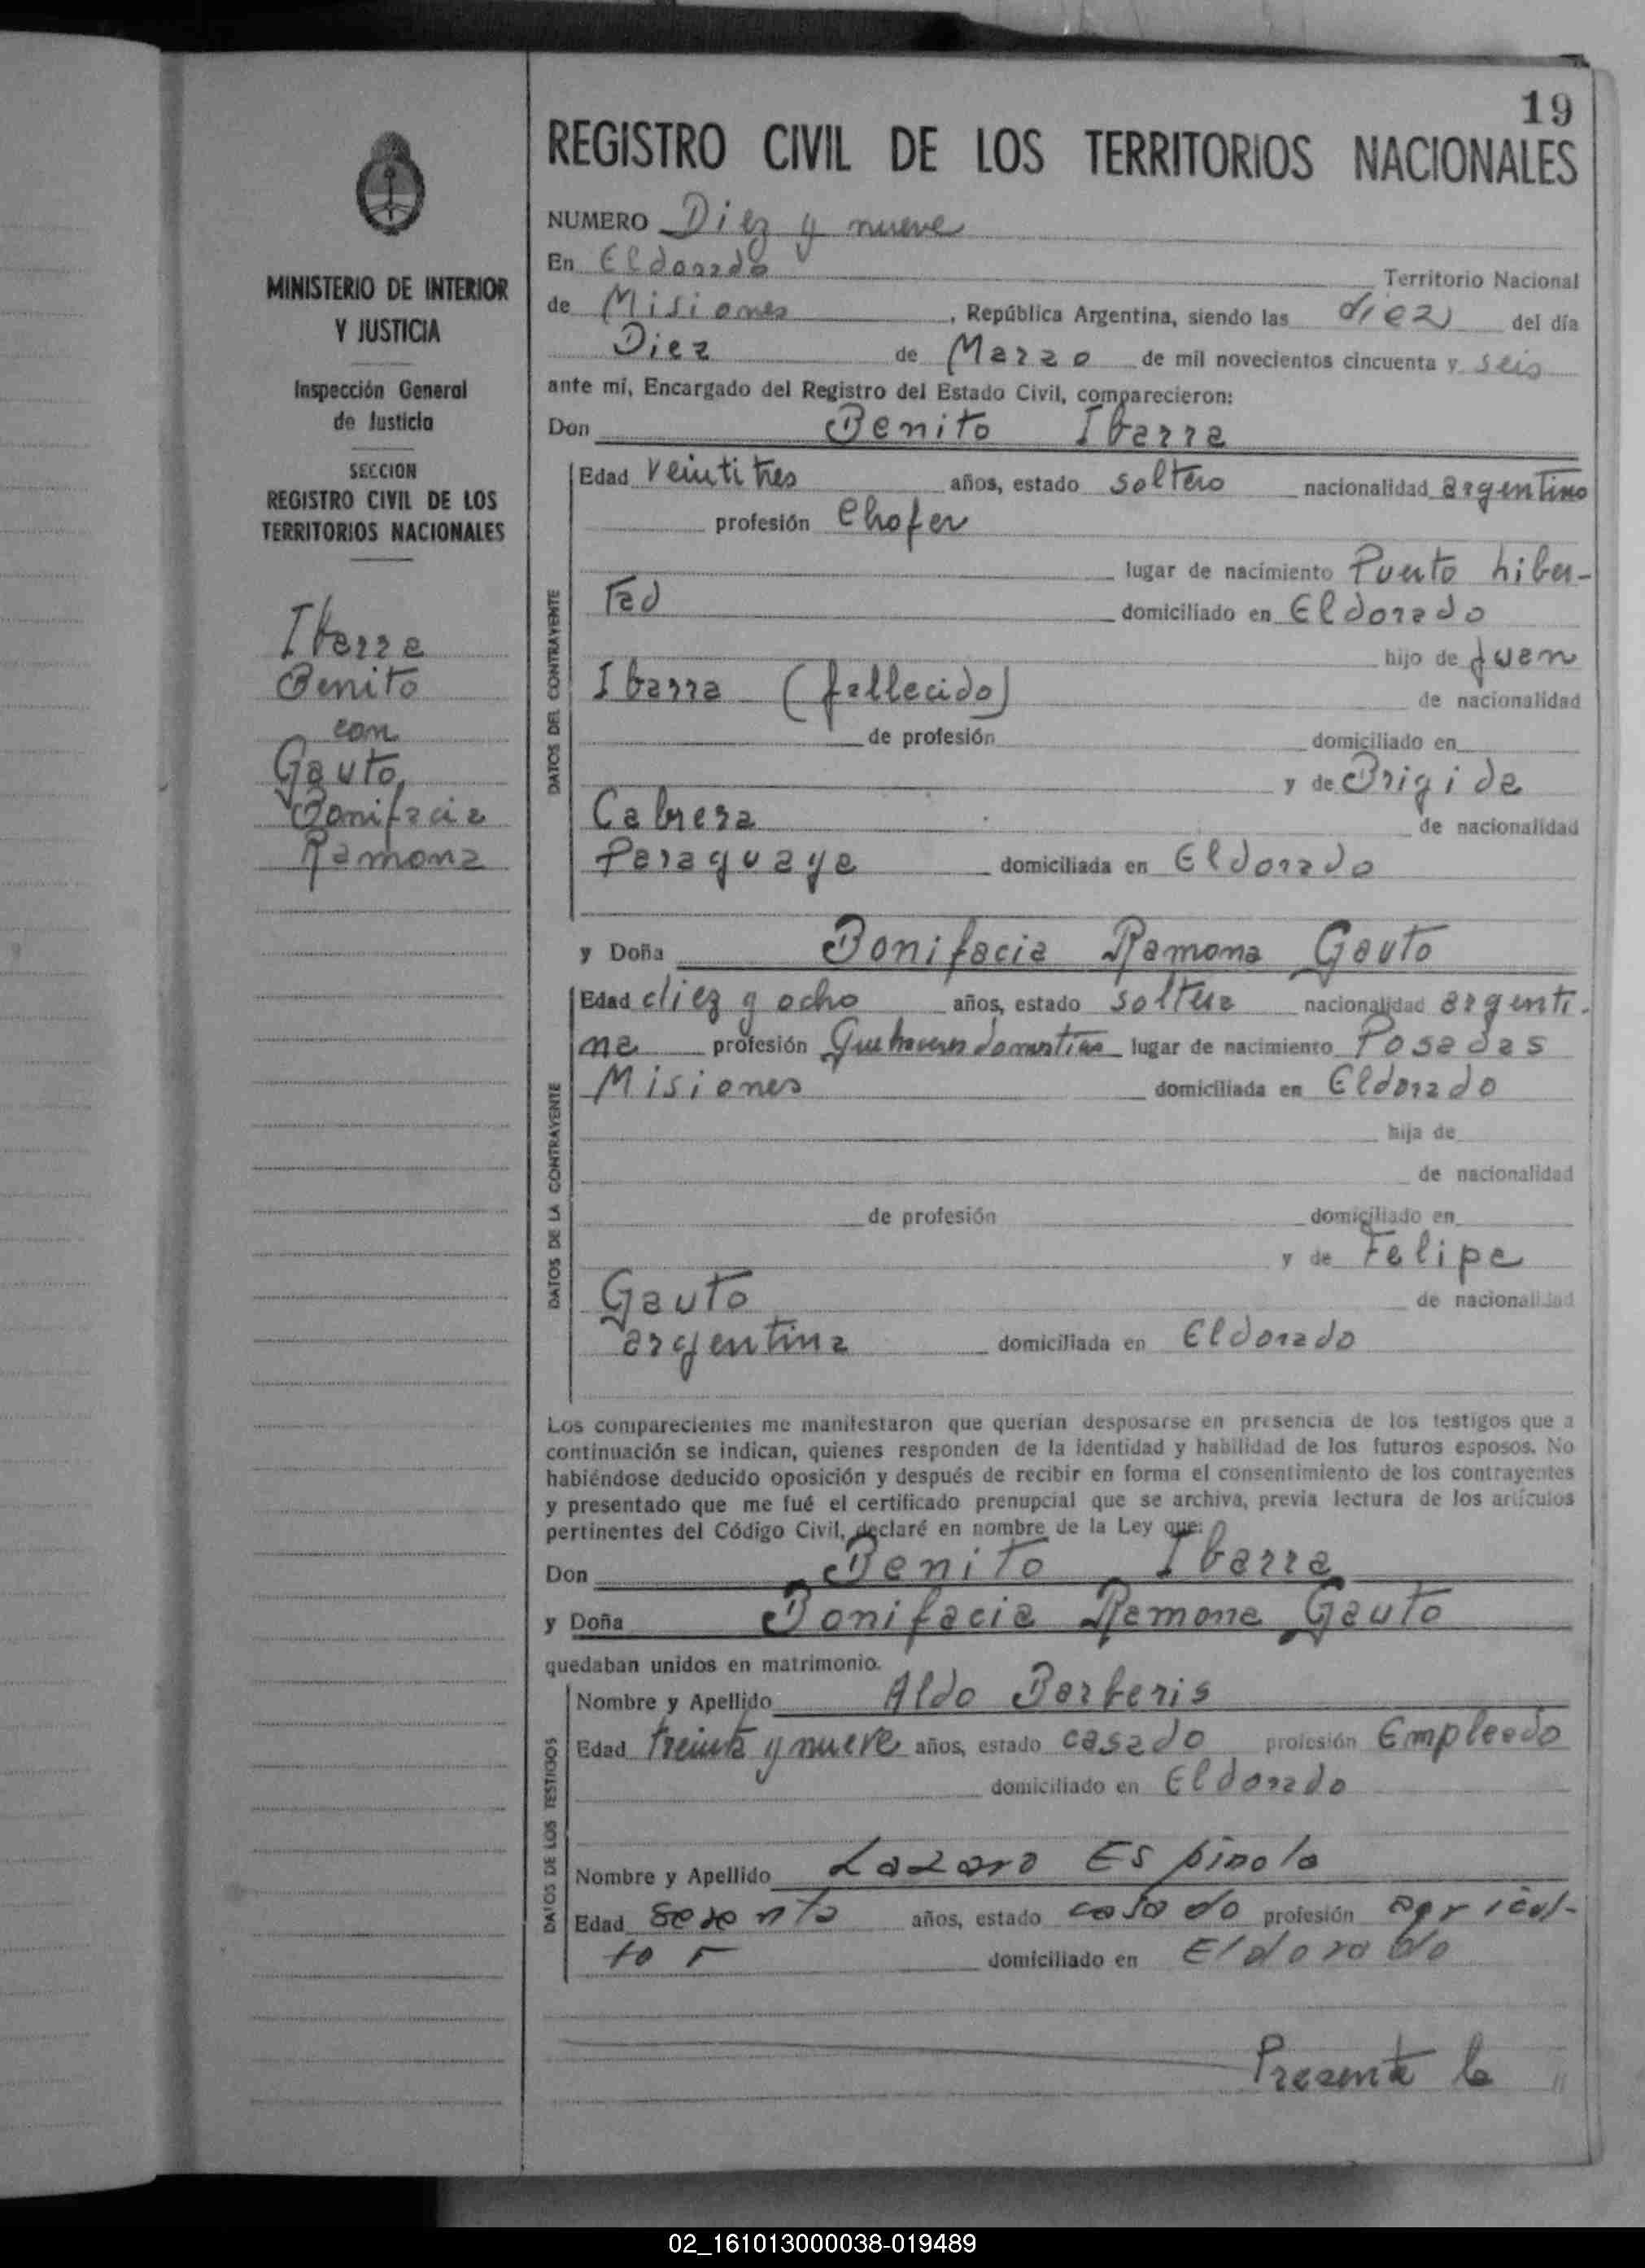 19
REGISTRO CIVIL DE LOS TERRITORIOS NACIONALES
MINISTERIO DE INTERIOR
Y JUSTICIA
Inspección General
de Justicia
SECCION
REGISTRO CIVIL DE LOS
TERRITORIOS NACIONALES
Ibarra
Benito
con
Gauto,
Bonifacia
Ramona
NUMERO Diez y nueve
En Eldorado Territorio Nacional
de Misiones, República Argentina, siendo las diez del día
Diez de Marzo de mil novecientos cincuenta y seis
ante mí, Encargado del Registro del Estado Civil, comparecieron:
Don Benito Ibarra
DATOS DEL CONTRAYENTE
Edad veintitres años, estado soltero nacionalidad argentino
profesión Chofer
lugar de nacimiento Puerto Liber-
tad domiciliado en Eldorado
hijo de Juan
Ibarra (fallecido) de nacionalidad
de profesión domiciliado en
y de Brigida
Cabrera de nacionalidad
Paraguaya domiciliada en Eldorado
y Doña Bonifacia Ramona Gauto
DATOS DE LA CONTRAYENTE
Edad diez y ocho años, estado soltera nacionalidad argenti-
na profesión Quehaceres domesticos lugar de nacimiento Posadas
Misiones domiciliada en Eldorado
hija de
de nacionalidad
de profesión domiciliado en
y de Felipa
Gauto de nacionalidad
argentina domiciliada en Eldorado
Los comparecientes me manifestaron que querían desposarse en presencia de los testigos que a
continuación se indican, quienes responden de la identidad y habilidad de los futuros esposos. No
habiéndose deducido oposición y después de recibir en forma el consentimiento de los contrayentes
y presentado que me fué el certificado prenupcial que se archiva, previa lectura de los artículos
pertinentes del Código Civil, declaré en nombre de la Ley que:
Don Benito Ibarra
y Doña Bonifacia Ramona Gauto
quedaban unidos en matrimonio.
DATOS DE LOS TESTIGOS
Nombre y Apellido Aldo Barberis
Edad treinta y nueve años, estado casado profesión Empleado
domiciliado en Eldorado
Nombre y Apellido Lazaro Espinola
Edad sesenta años, estado casado profesión agricul-
tor domiciliado en Eldorado
Presente la
02_161013000038-019489